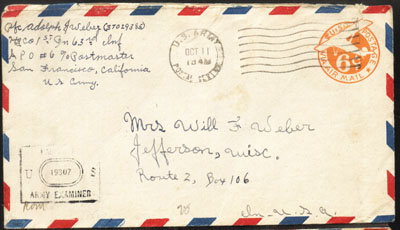 Pfc. Adolph J Weber (37029386)
Hq Co 1st Bn 63rd Inf
A P O #6 % Postmaster
San Francisco, California
U S Army
U.S. ARMY
OCT 11
POSTAL SERVICE
U.S. POSTAGE
6¢
VIA AIR MAIL
Mrs Will F Weber
Jefferson, Wisc.
Route 2, Box 106
U.S.A.
U S
19307
ARMY EXAMINER